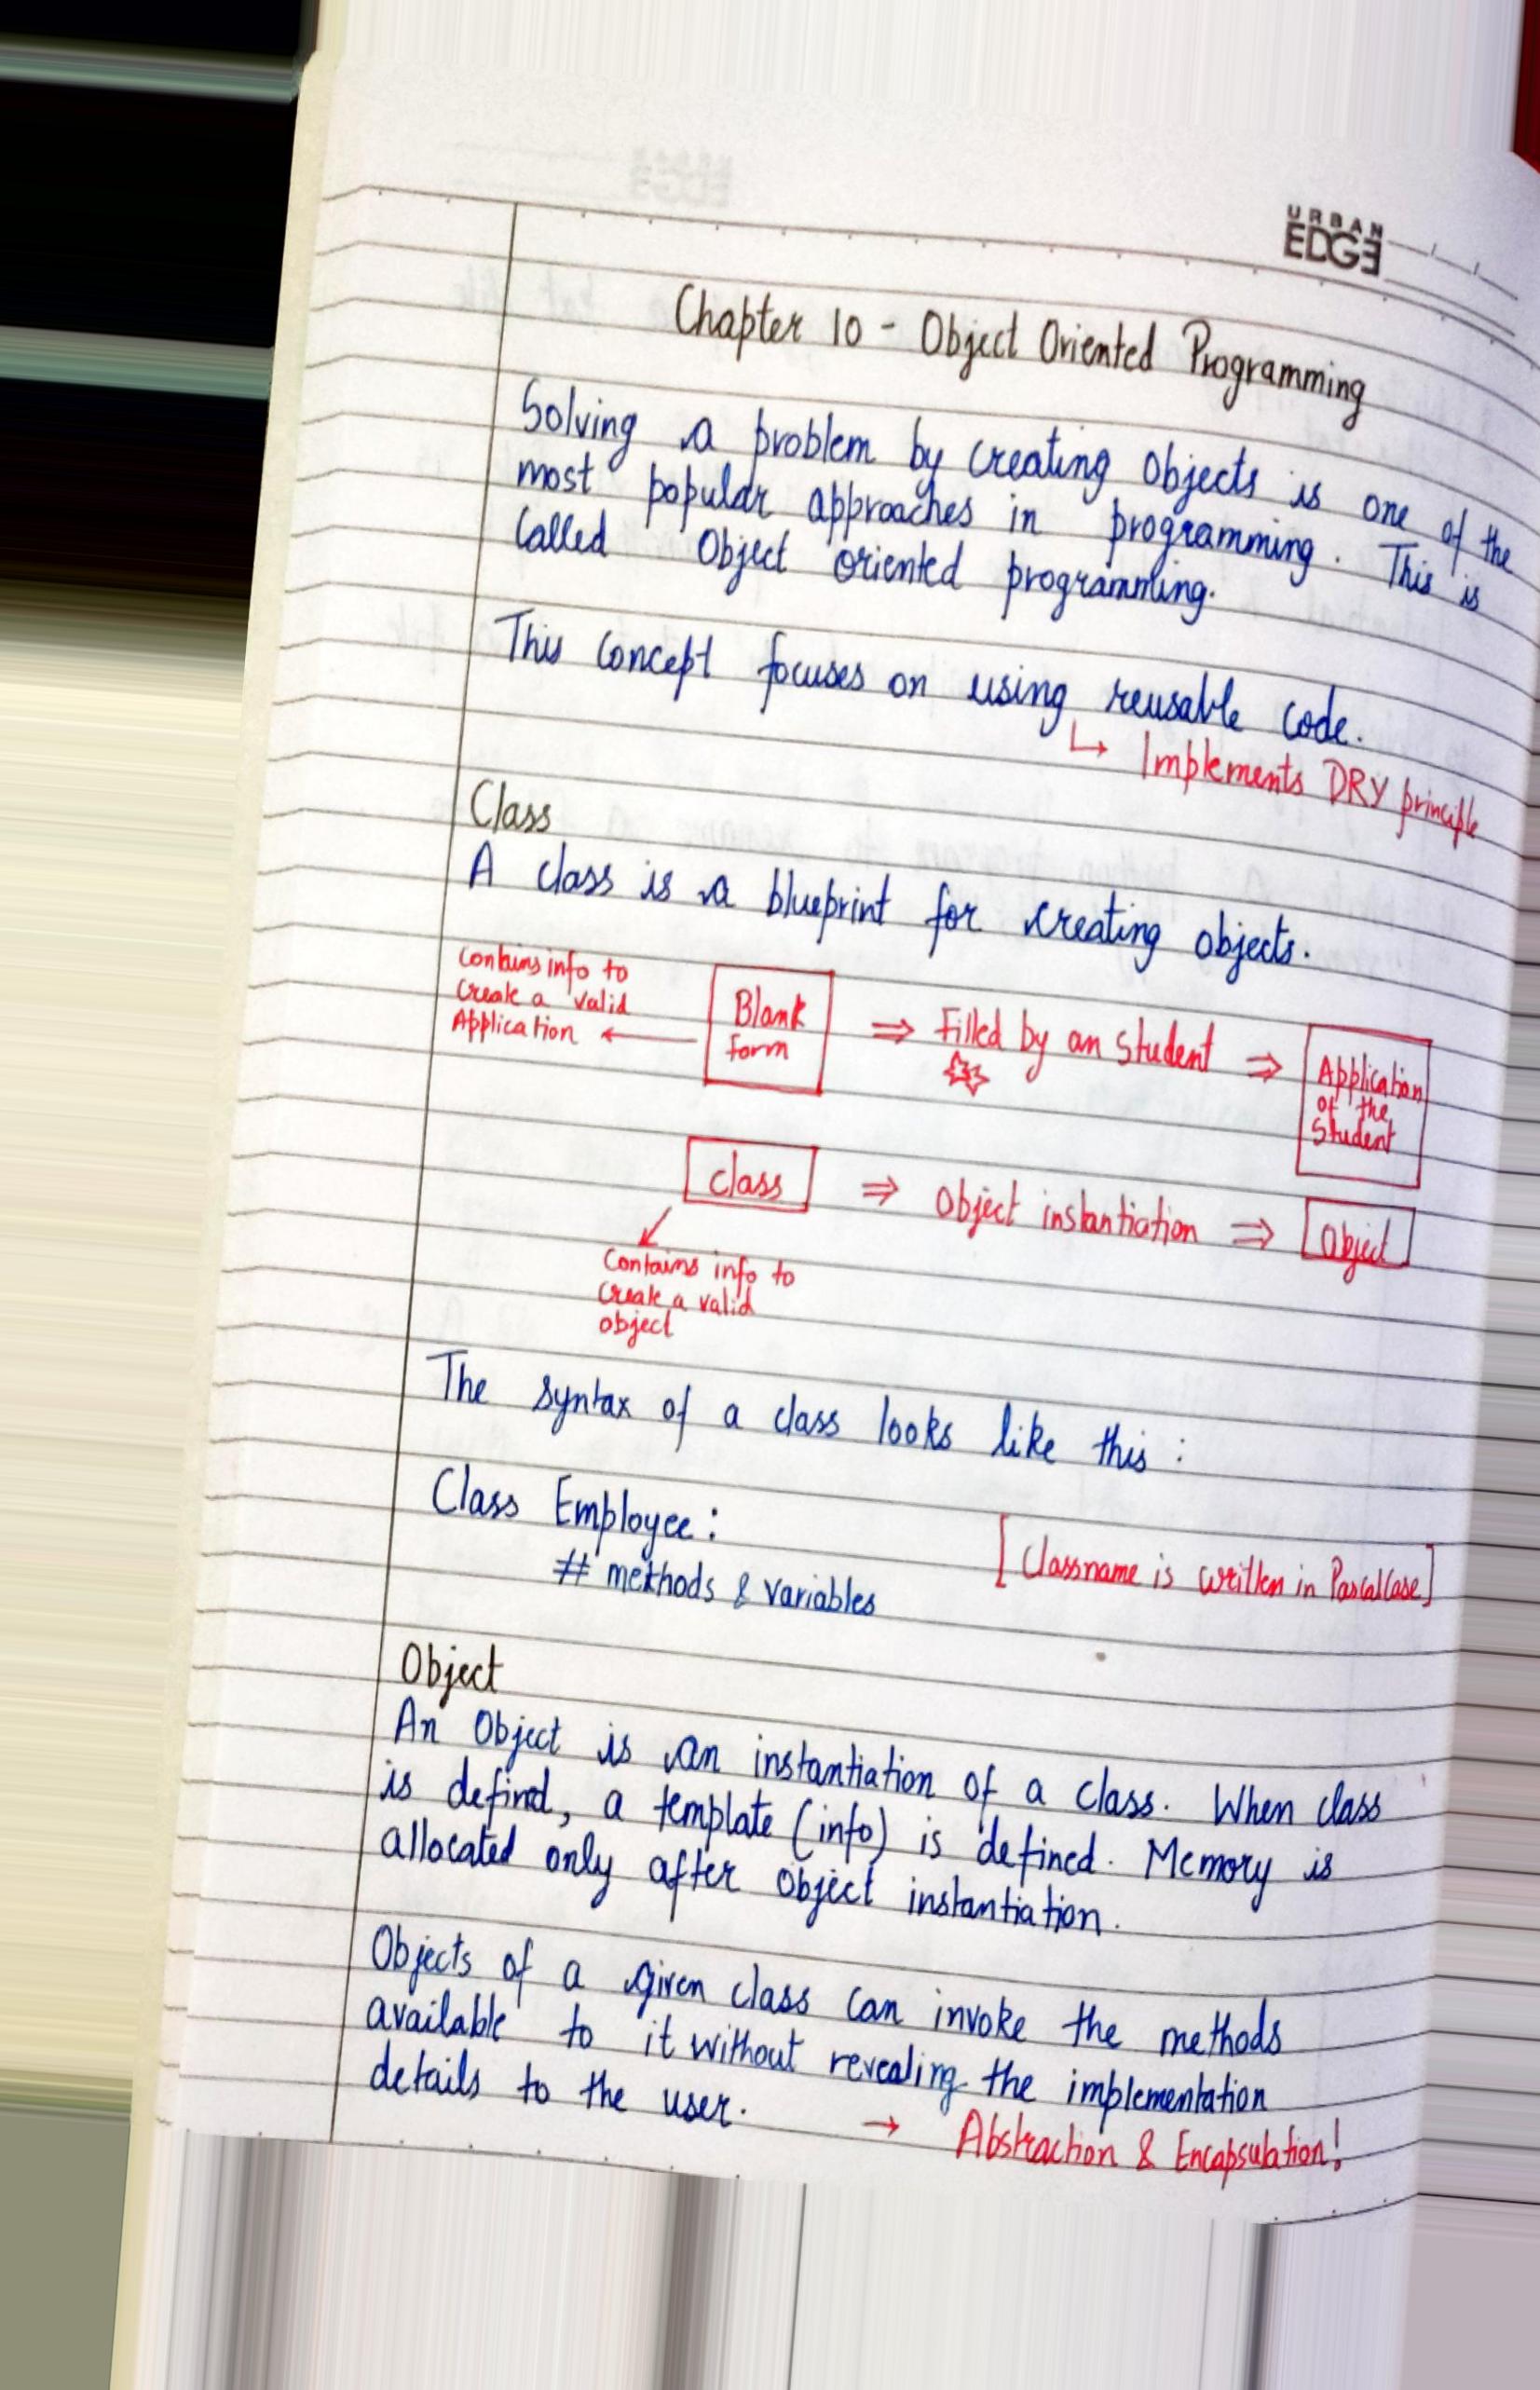 URBAN
EDGE
Chapter 10 - Object Oriented Programming
Solving a problem by creating objects is one of the
most popular approaches in programming. This is
called Object oriented programming.
This concept focuses on using reusable code.
↳ Implements DRY principle
Class
A class is a blueprint for creating objects.
Contains info to
Create a valid
Application ←
Blank
form
⇒ Filled by an student ⇒
Application
of the
Student
class ⇒ Object instantiation ⇒ Object
Contains info to
Create a valid
object
The syntax of a class looks like this :
Class Employee :
# methods & variables
[Classname is written in PascalCase]
Object
An Object is an instantiation of a class. When class
is defind, a template (info) is defined. Memory is
allocated only after object instantiation.
Objects of a given class can invoke the methods
available to it without revealing the implementation
details to the user.
→ Abstraction & Encapsulation!